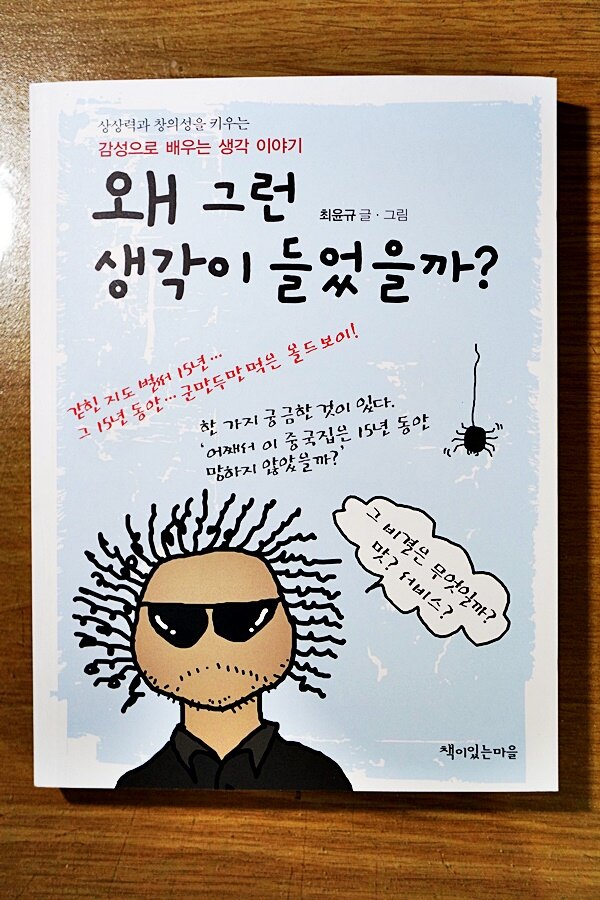 상상력과 창의성을 키우는
감성으로 배우는 생각 이야기
왜 그런
최윤규 글 · 그림
생각이 들었을까?
갇힌 지도 벌써 15년...
그 15년 동안... 군만두만 먹은 올드보이!
한 가지 궁금한 것이 있다.
'어째서 이 중국집은 15년 동안
망하지 않았을까?'
그 비결은 무엇일까?
맛? 서비스?
책이있는마을